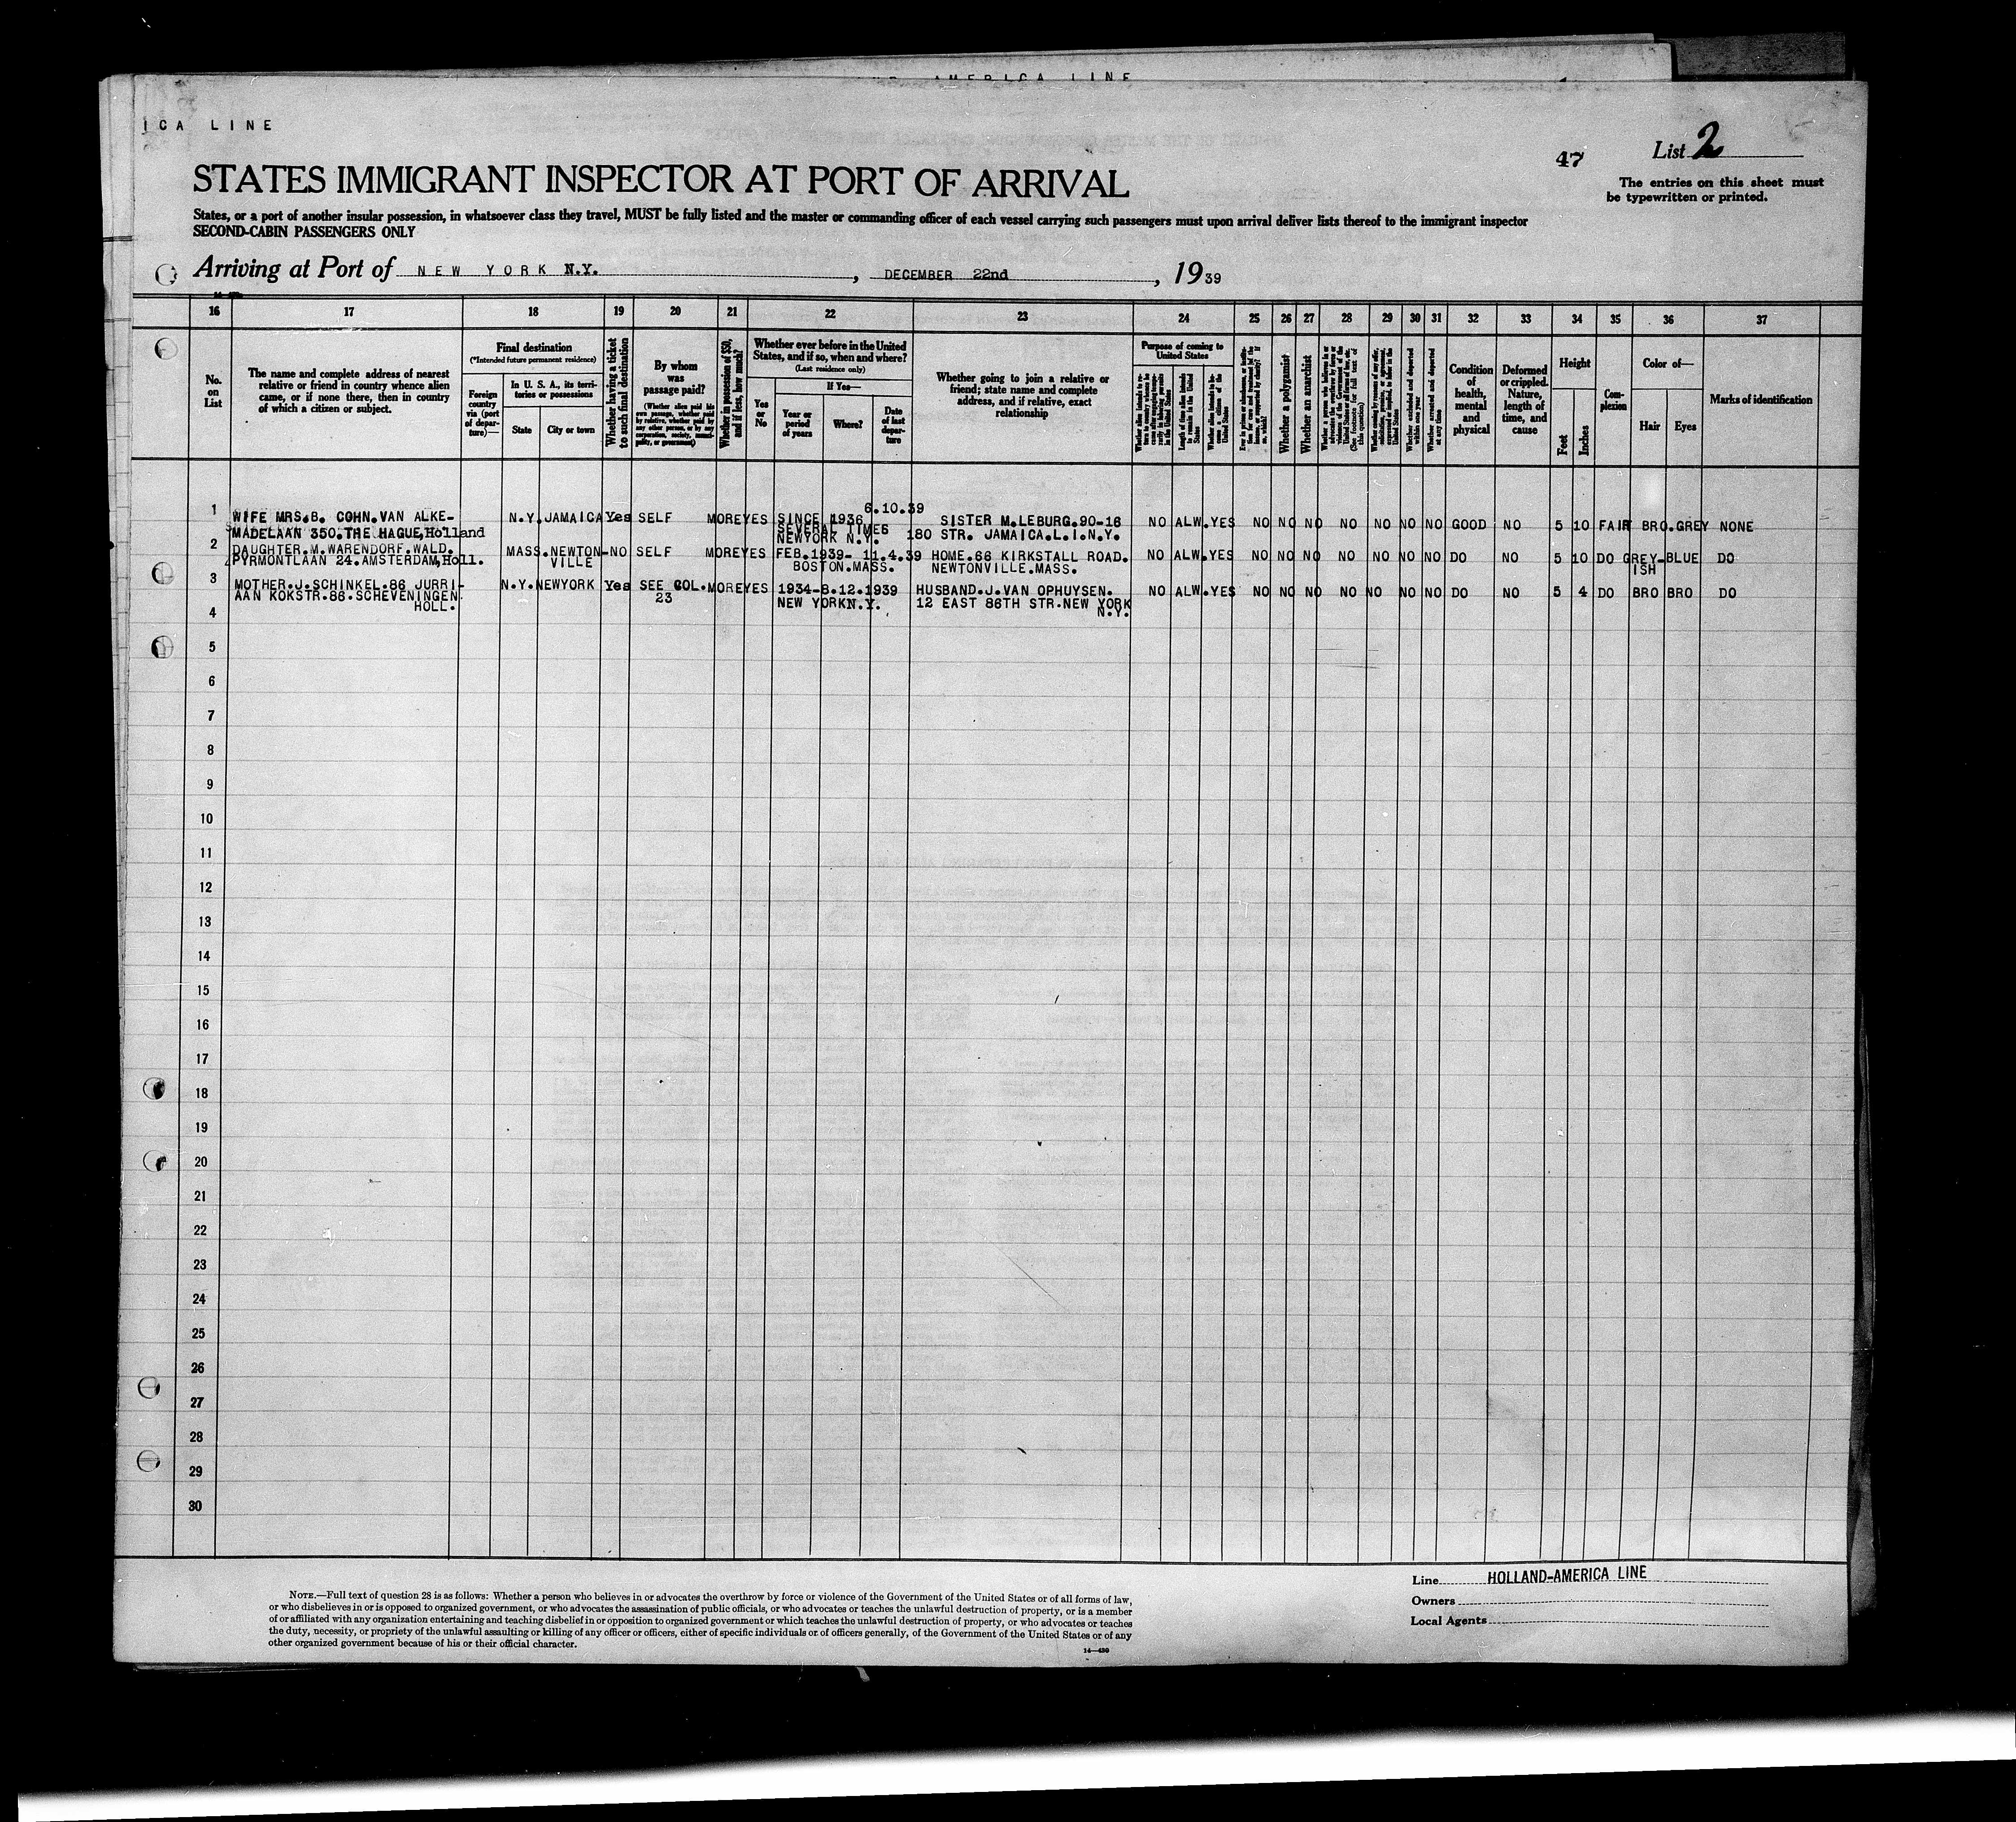 AMERICA LINE
ICA LINE
47 List 2
STATES IMMIGRANT INSPECTOR AT PORT OF ARRIVAL
The entries on this sheet must
be typewritten or printed.
States, or a port of another insular possession, in whatsoever class they travel, MUST be fully listed and the master or commanding officer of each vessel carrying such passengers must upon arrival deliver lists thereof to the immigrant inspector
SECOND-CABIN PASSENGERS ONLY
Arriving at Port of NEW YORK N.Y., DECEMBER 22nd, 1939
16 17 18 19 20 21 22 23 24 25 26 27 28 29 30 31 32 33 34 35 36 37
No.
on
List
The name and complete address of nearest
relative or friend in country whence alien
came, or if none there, then in country
of which a citizen or subject.
Final destination
(*Intended future permanent residence)
Foreign
country
via (port
of depar-
ture)—
In U. S. A., its terri-
tories or possessions
State
City or town
Whether having a ticket
to such final destination
By whom
was
passage paid?
(Whether alien paid his
own passage, whether paid
by relative, whether paid by
any other person, or by any
corporation, society, munici-
pality, or government)
Whether in possession of $50,
and if less, how much?
Whether ever before in the United
States, and if so, when and where?
(Last residence only)
Yes
or
No
If Yes—
Year or
period
of years
Where?
Date
of last
depar-
ture
Whether going to join a relative or
friend; state name and complete
address, and if relative, exact
relationship
Purpose of coming to
United States
Length of time alien intends
to remain in the United
States
Whether alien intends to be-
come a citizen of the
United States
Whether a polygamist
Whether an anarchist
(See footnote for full text of
this question)
Whether arrested and deported
at any time
Condition
of
health,
mental
and
physical
Deformed
or crippled.
Nature,
length of
time, and
cause
Height
Feet
Inches
Com-
plexion
Color of—
Hair
Eyes
Marks of identification
1 WIFE MRS.B. COHN.VAN ALKE-
MADELAAN 350.THE HAGUE,Holland
N.Y. JAMAICA Yes SELF MORE YES SINCE 1936 6.10.39
SEVERAL TIMES
NEWYORK N.Y.
SISTER M.LEBURG.90-16
180 STR. JAMAICA.L.I.N.Y.
NO ALW. YES NO NO NO NO NO NO NO GOOD NO 5 10 FAIR BRO. GREY NONE
2 DAUGHTER.M.WARENDORF.WALD.
PYRMONTLAAN 24.AMSTERDAM,Holl.
MASS. NEWTON-
VILLE
NO SELF MORE YES FEB.1939- 11.4.39
BOSTON.MASS.
HOME.66 KIRKSTALL ROAD.
NEWTONVILLE.MASS.
NO ALW. YES NO NO NO NO NO NO NO DO NO 5 10 DO GREY-
ISH
BLUE DO
3 MOTHER.J.SCHINKEL.86 JURRI-
AAN KOKSTR.86.SCHEVENINGEN.
HOLL.
N.Y. NEWYORK Yes SEE COL.
23
MORE YES 1934-8.12.1939
NEW YORK N.Y.
HUSBAND.J.VAN OPHUYSEN.
12 EAST 86TH STR.NEW YORK
N.Y.
NO ALW. YES NO NO NO NO NO NO NO DO NO 5 4 DO BRO BRO DO
4
5
6
7
8
9
10
11
12
13
14
15
16
17
18
19
20
21
22
23
24
25
26
27
28
29
30
NOTE.—Full text of question 28 is as follows: Whether a person who believes in or advocates the overthrow by force or violence of the Government of the United States or of all forms of law,
or who disbelieves in or is opposed to organized government, or who advocates the assassination of public officials, or who advocates or teaches the unlawful destruction of property, or is a member
of or affiliated with any organization entertaining and teaching disbelief in or opposition to organized government or which teaches the unlawful destruction of property, or who advocates or teaches
the duty, necessity, or propriety of the unlawful assaulting or killing of any officer or officers, either of specific individuals or of officers generally, of the Government of the United States or of any
other organized government because of his or their official character.
14—430
Line HOLLAND-AMERICA LINE
Owners
Local Agents